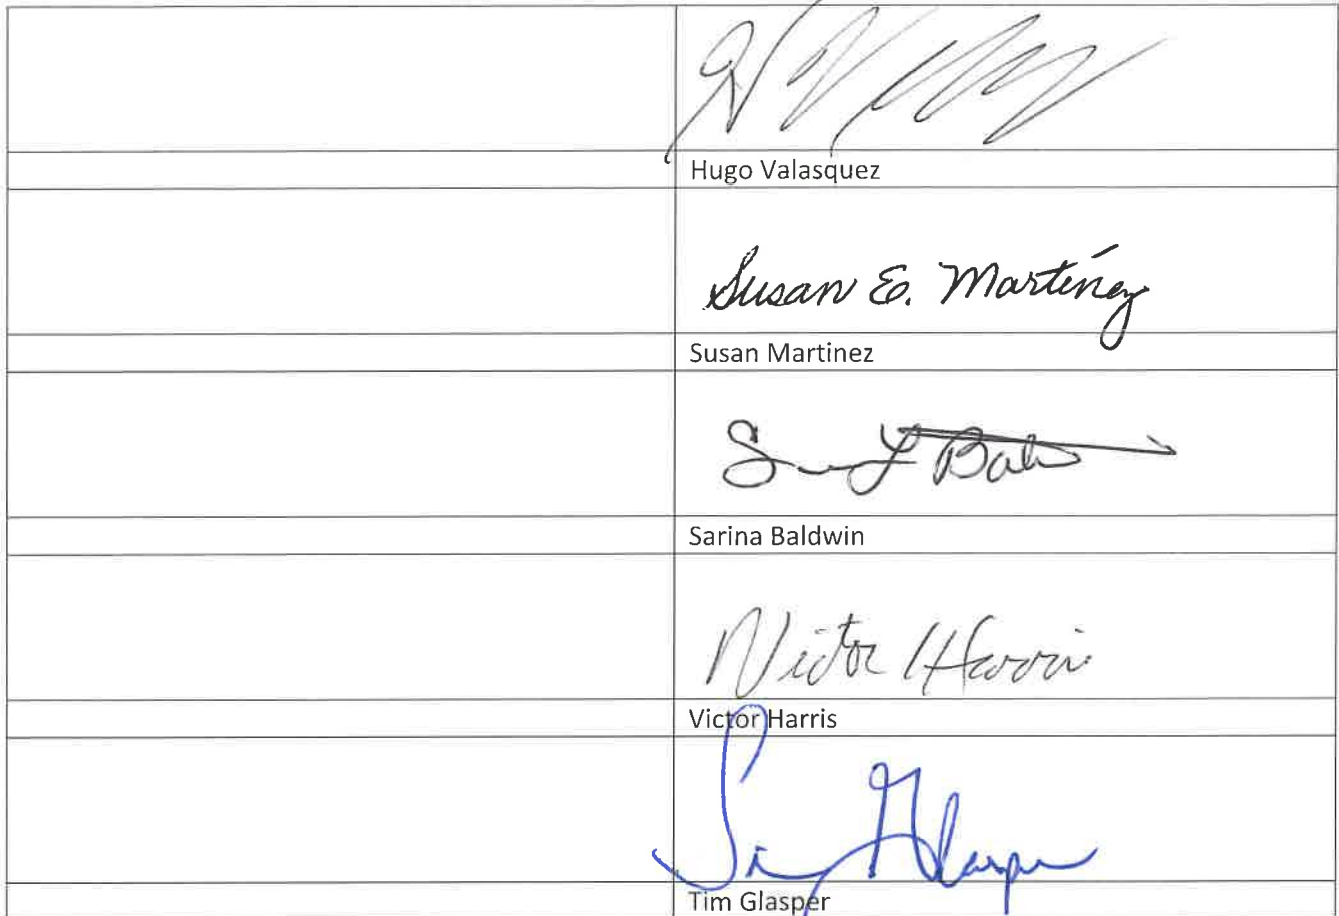 Hugo Valasquez
Susan E. Martinez
Susan Martinez
Sarina Baldwin
Victor Harris
Victor Harris
Tim Glasper
Tim Glasper